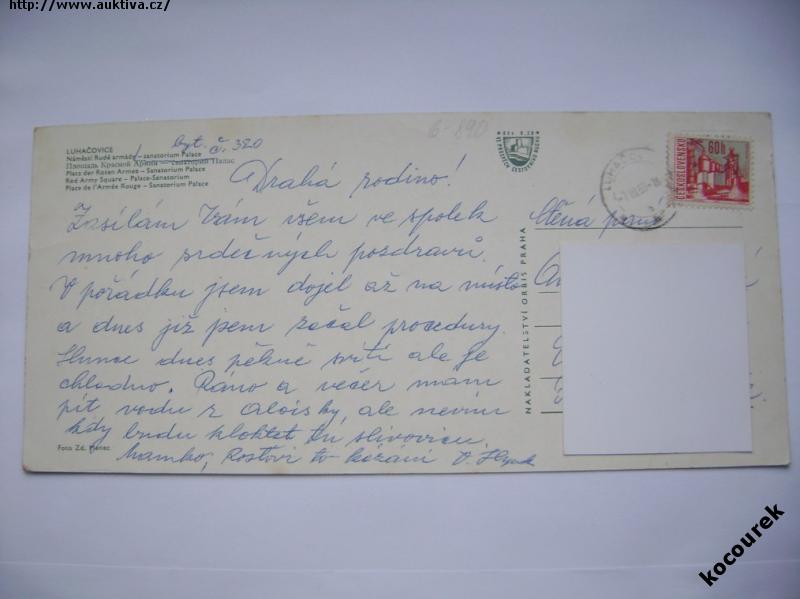 http://www.auktiva.cz/
LUHAČOVICE
Náměstí Rudé armády – sanatorium Palace
Площадь Красной Армии – санаторий Палас
Platz der Roten Armee – Sanatorium Palace
Red Army Square – Palace-Sanatorium
Place de l'Armée Rouge – Sanatorium Palace
byt. č. 320
6-890
60h
ČESKOSLOVENSKO
Drahá rodino!
Zasílám Vám všem ve spolek
mnoho srdečných pozdravů.
V pořádku jsem dojel až na místo
a dnes již jsem začal procedury.
Slunce dnes pěkně svítí ale je
chladno. Ráno a večer mám
pít vodu z Aloisky, ale nevím
kdy budu kloktat tu slivovicu.
Mamko, Rostovi to kázání
Vážená
NAKLADATELSTVÍ ORBIS PRAHA
Foto Zd. Pěnec
kocourek